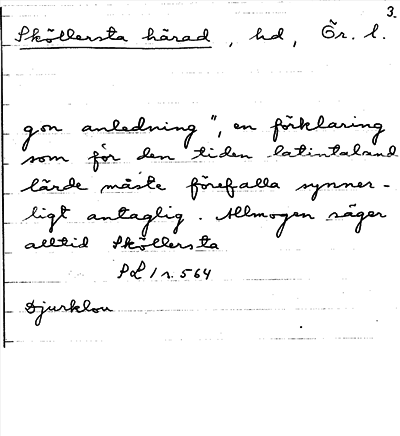 3.
Sköllersta härad, hd, Ör. l.
gon anledning", en förklaring
som för den tiden latintaland
lärde måste förefalla synner-
ligt antaglig. Allmogen säger
alltid Sköllersta
Djurklou